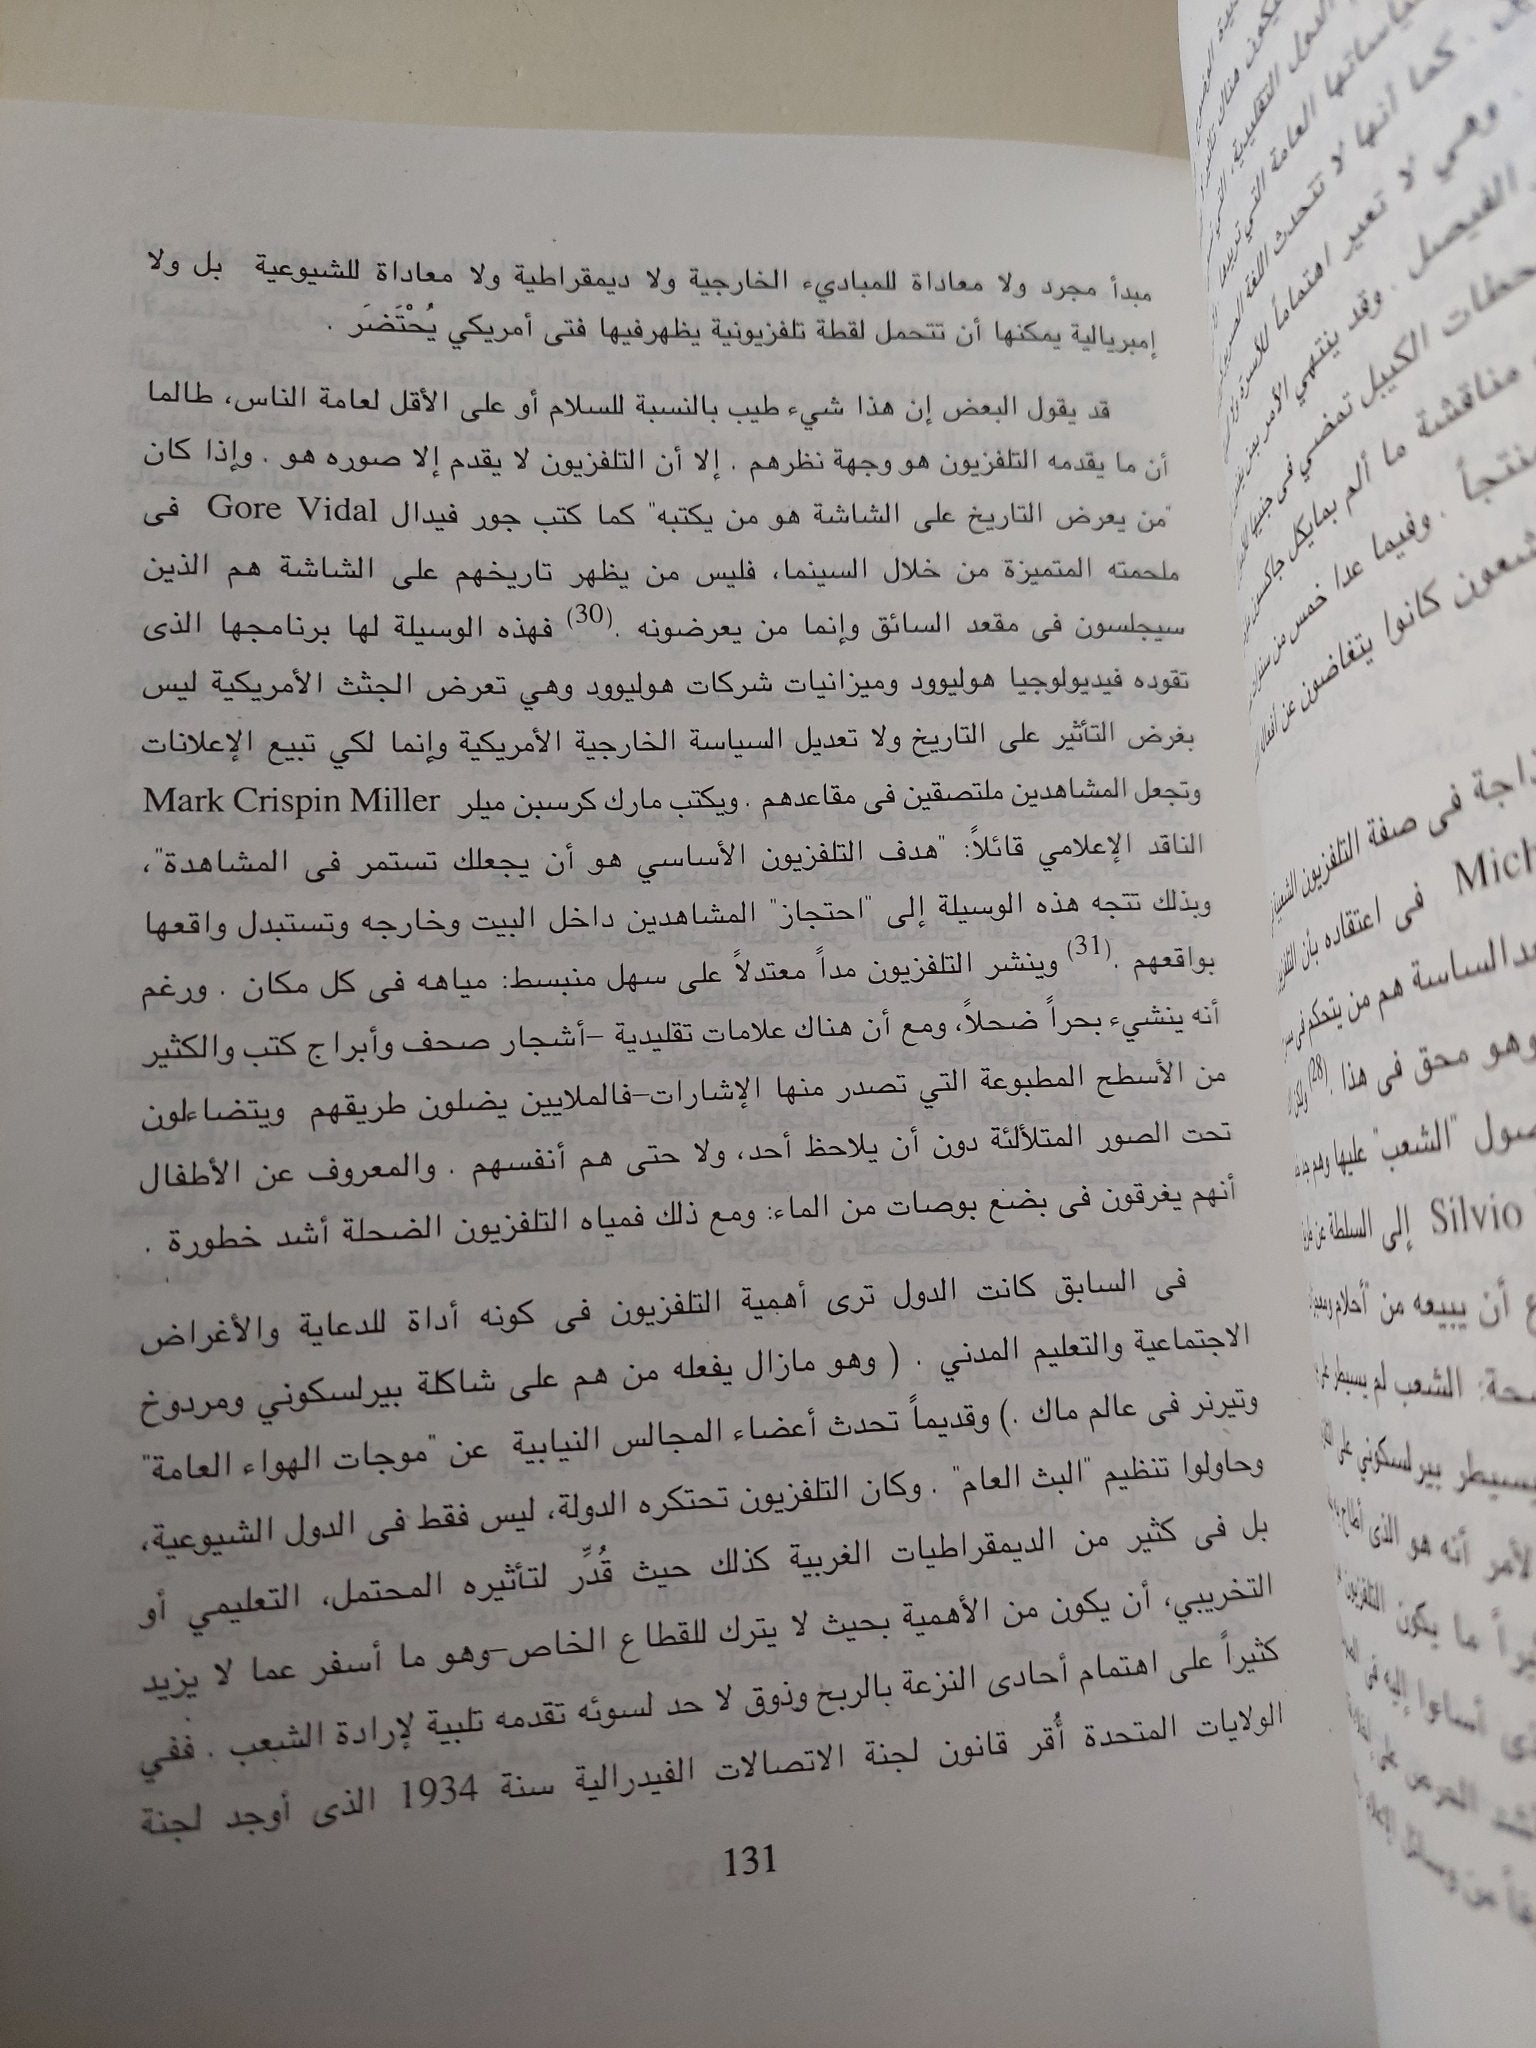 مبدأ مجرد ولا معاداة للمباديء الخارجية ولا ديمقراطية ولا معاداة للشيوعية بل ولا
إمبريالية يمكنها أن تتحمل لقطة تلفزيونية يظهرفيها فتى أمريكي يُحْتَضَر .
قد يقول البعض إن هذا شيء طيب بالنسبة للسلام أو على الأقل لعامة الناس، طالما
أن ما يقدمه التلفزيون هو وجهة نظرهم . إلا أن التلفزيون لا يقدم إلا صوره هو . وإذا كان
"من يعرض التاريخ على الشاشة هو من يكتبه" كما كتب جور فيدال Gore Vidal فى
ملحمته المتميزة من خلال السينما، فليس من يظهر تاريخهم على الشاشة هم الذين
سيجلسون فى مقعد السائق وإنما من يعرضونه .(30) فهذه الوسيلة لها برنامجها الذى
تقوده فيديولوجيا هوليوود وميزانيات شركات هوليوود وهي تعرض الجثث الأمريكية ليس
بغرض التأثير على التاريخ ولا تعديل السياسة الخارجية الأمريكية وإنما لكي تبيع الإعلانات
وتجعل المشاهدين ملتصقين فى مقاعدهم . ويكتب مارك كرسبن ميلر Mark Crispin Miller
الناقد الإعلامي قائلاً: "هدف التلفزيون الأساسي هو أن يجعلك تستمر فى المشاهدة"،
وبذلك تتجه هذه الوسيلة إلى "احتجاز" المشاهدين داخل البيت وخارجه وتستبدل واقعها
بواقعهم .(31) وينشر التلفزيون مداً معتدلاً على سهل منبسط: مياهه فى كل مكان . ورغم
أنه ينشيء بحراً ضحلاً، ومع أن هناك علامات تقليدية –أشجار صحف وأبراج كتب والكثير
من الأسطح المطبوعة التي تصدر منها الإشارات–فالملايين يضلون طريقهم ويتضاءلون
تحت الصور المتلألئة دون أن يلاحظ أحد، ولا حتى هم أنفسهم . والمعروف عن الأطفال
أنهم يغرقون فى بضع بوصات من الماء: ومع ذلك فمياه التلفزيون الضحلة أشد خطورة .
فى السابق كانت الدول ترى أهمية التلفزيون فى كونه أداة للدعاية والأغراض
الاجتماعية والتعليم المدني . ( وهو مازال يفعله من هم على شاكلة بيرلسكوني ومردوخ
وتيرنر فى عالم ماك .) وقديماً تحدث أعضاء المجالس النيابية عن "موجات الهواء العامة"
وحاولوا تنظيم "البث العام" . وكان التلفزيون تحتكره الدولة، ليس فقط فى الدول الشيوعية،
بل فى كثير من الديمقراطيات الغربية كذلك حيث قُدِّر لتأثيره المحتمل، التعليمي أو
التخريبي، أن يكون من الأهمية بحيث لا يترك للقطاع الخاص–وهو ما أسفر عما لا يزيد
كثيراً على اهتمام أحادى النزعة بالربح وذوق لا حد لسوئه تقدمه تلبية لإرادة الشعب . ففي
الولايات المتحدة أُقر قانون لجنة الاتصالات الفيدرالية سنة 1934 الذى أوجد لجنة
131
كما أنها لا تتحدث اللغة
وهي لا تعير اهتماماً
الفيصل . وقد ينتهي الأمر
الكيبل تمضي فى
مناقشة ما ألم بمايكل جاكسون
وفيما عدا خمس من
كانوا يتغاضون عن
فى صفة التلفزيون
فى اعتقاده بأن
الساسة هم من يتحكم فى
وهو محق فى هذا .(28)
"الشعب" عليها وهم
Silvio إلى السلطة عن
أن يبيعه من "أحلام
الشعب لم يسيطر
بيرلسكوني على
أنه هو الذى
ما يكون التلفزيون
أساءوا إليه فى